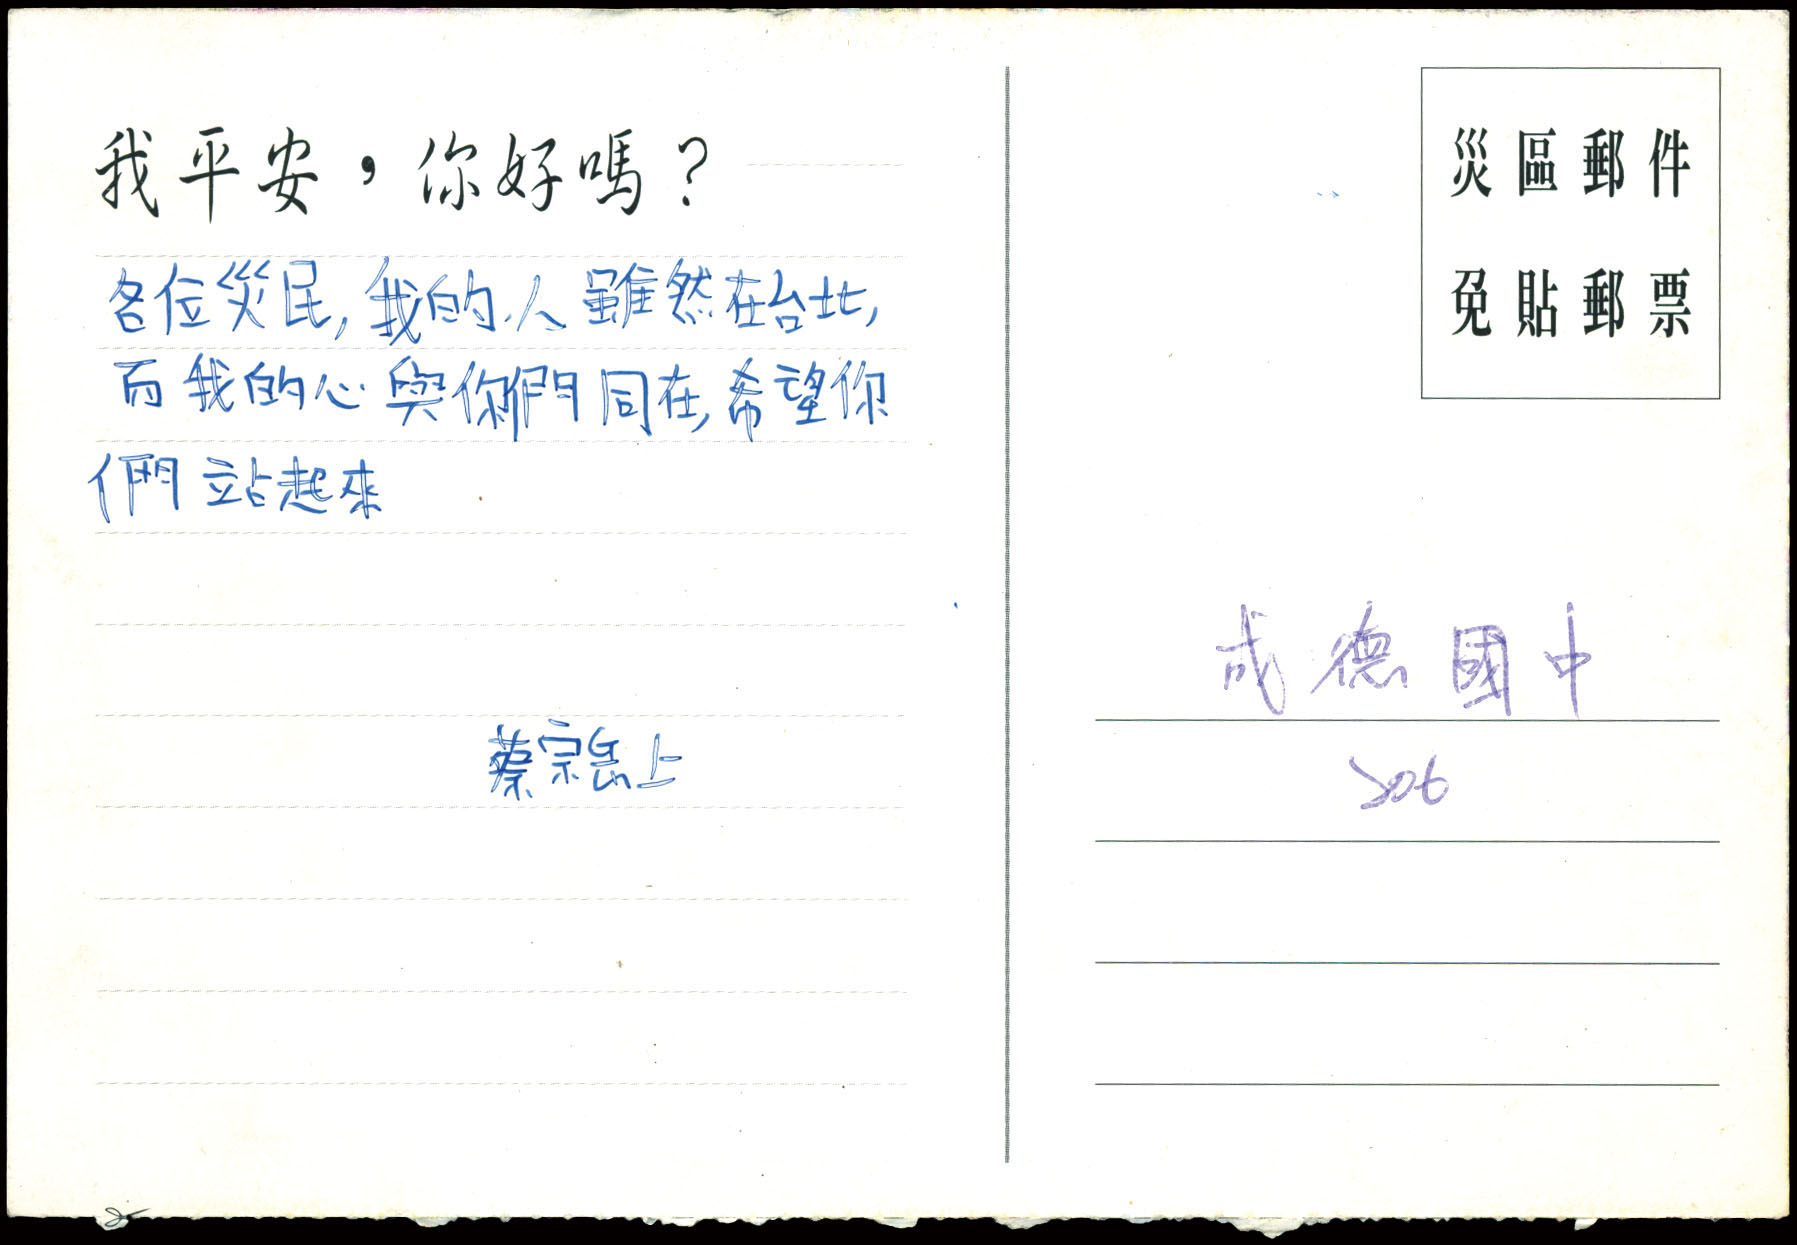 我平安，你好嗎？
各位災民,我的人雖然在台北,
而我的心與你們同在,希望你
們站起來
蔡宗岳上
災區郵件
免貼郵票
成德國中
206